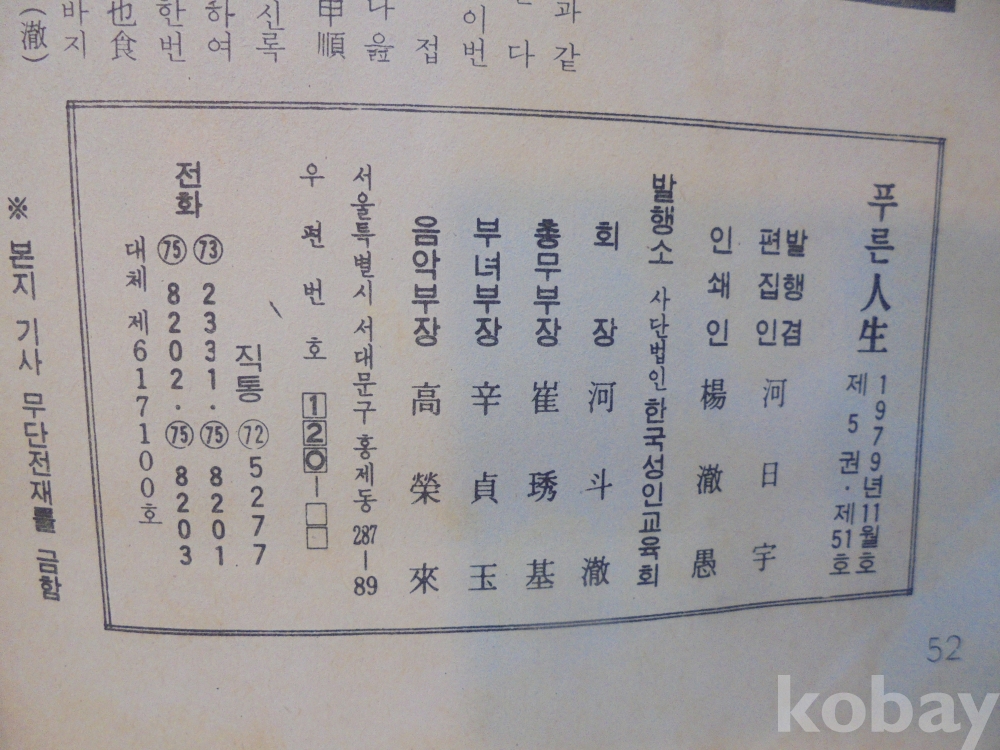 과같
다
이번
접
나옳
申順
신록
하여
한번
也食
바지
(澈)
푸른人生
1979년11월호
제5권·제51호
발행겸
편집인 河日宇
인쇄인 楊澈愚
발행소 사단법인 한국성인교육회
회장 河斗澈
총무부장 崔琇基
부녀부장 辛貞玉
음악부장 高榮來
서울특별시 서대문구 홍제동 287-89
우편번호 120-□□
직통 (72) 5277
전화 (73) 2331· (75) 8201
(75) 8202· (75) 8203
대체 제617100호
※ 본지 기사 무단전재를 금함
52
kobay